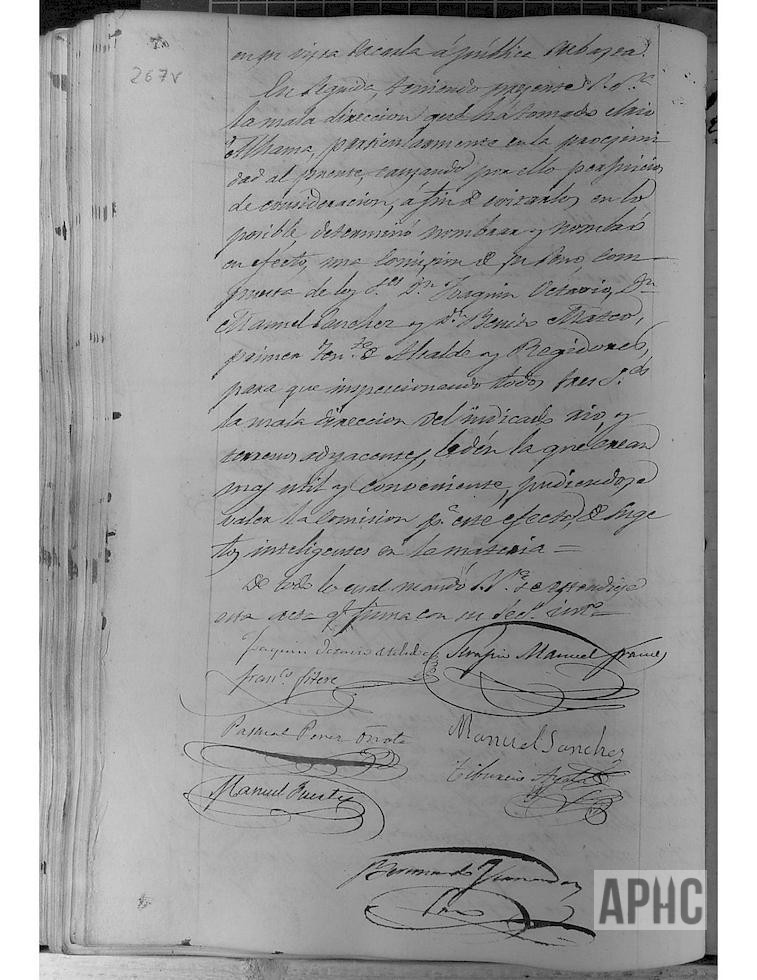 267v
en pr vez a sacarla á pública subasta.
En seguida, teniendo presente S. Sª
la mala direccion que há tomado el rio
Alhama, particularmente en la procsimi
dad al puente, causando por ello perjuicios
de consideracion, á fin de evitarlos en lo
posible, determinó nombrar y nombró
en efecto, una Comision de su seno, com-
puesta de los Sres Dn Joaquin Octavio, Dn
Manuel Sanchez y Dn Benito Mateo,
primer Tente de Alcalde y Regidores,
para que inspeccionando todos tres Sres
la mala direccion del indicado rio, y
terrenos adyacentes, le dén la que crean
mas util y conveniente, pudiendose
valer la Comision pª este efecto, de suge
tos inteligentes en la materia =
De todo lo cual mandó S. Sª se estendiese
esta acta qe firma con su Secº
Joaquin Octavio de Toledo
Serapio Manuel
Franco Fitero
Pascual Perez Oñate
Manuel Sanchez
Tiburcio Ayala
Manuel Puertas
Bernardo Fernandez
Srio
APHC